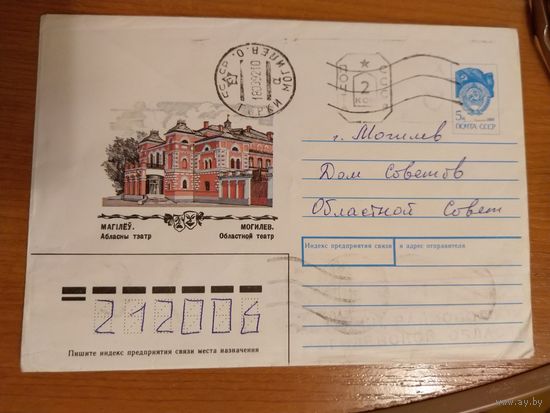 СССР
ГОРКИ МОГИЛЕВ. О.
2
КОП
5к
ПОЧТА СССР
г. Могилев
Дом Советов
Областной Совет
МАГІЛЁЎ.
Абласны тэатр
МОГИЛЕВ.
Областной театр
Индекс предприятия связи и адрес отправителя
212006
Пишите индекс предприятия связи места назначения
www.ay.by